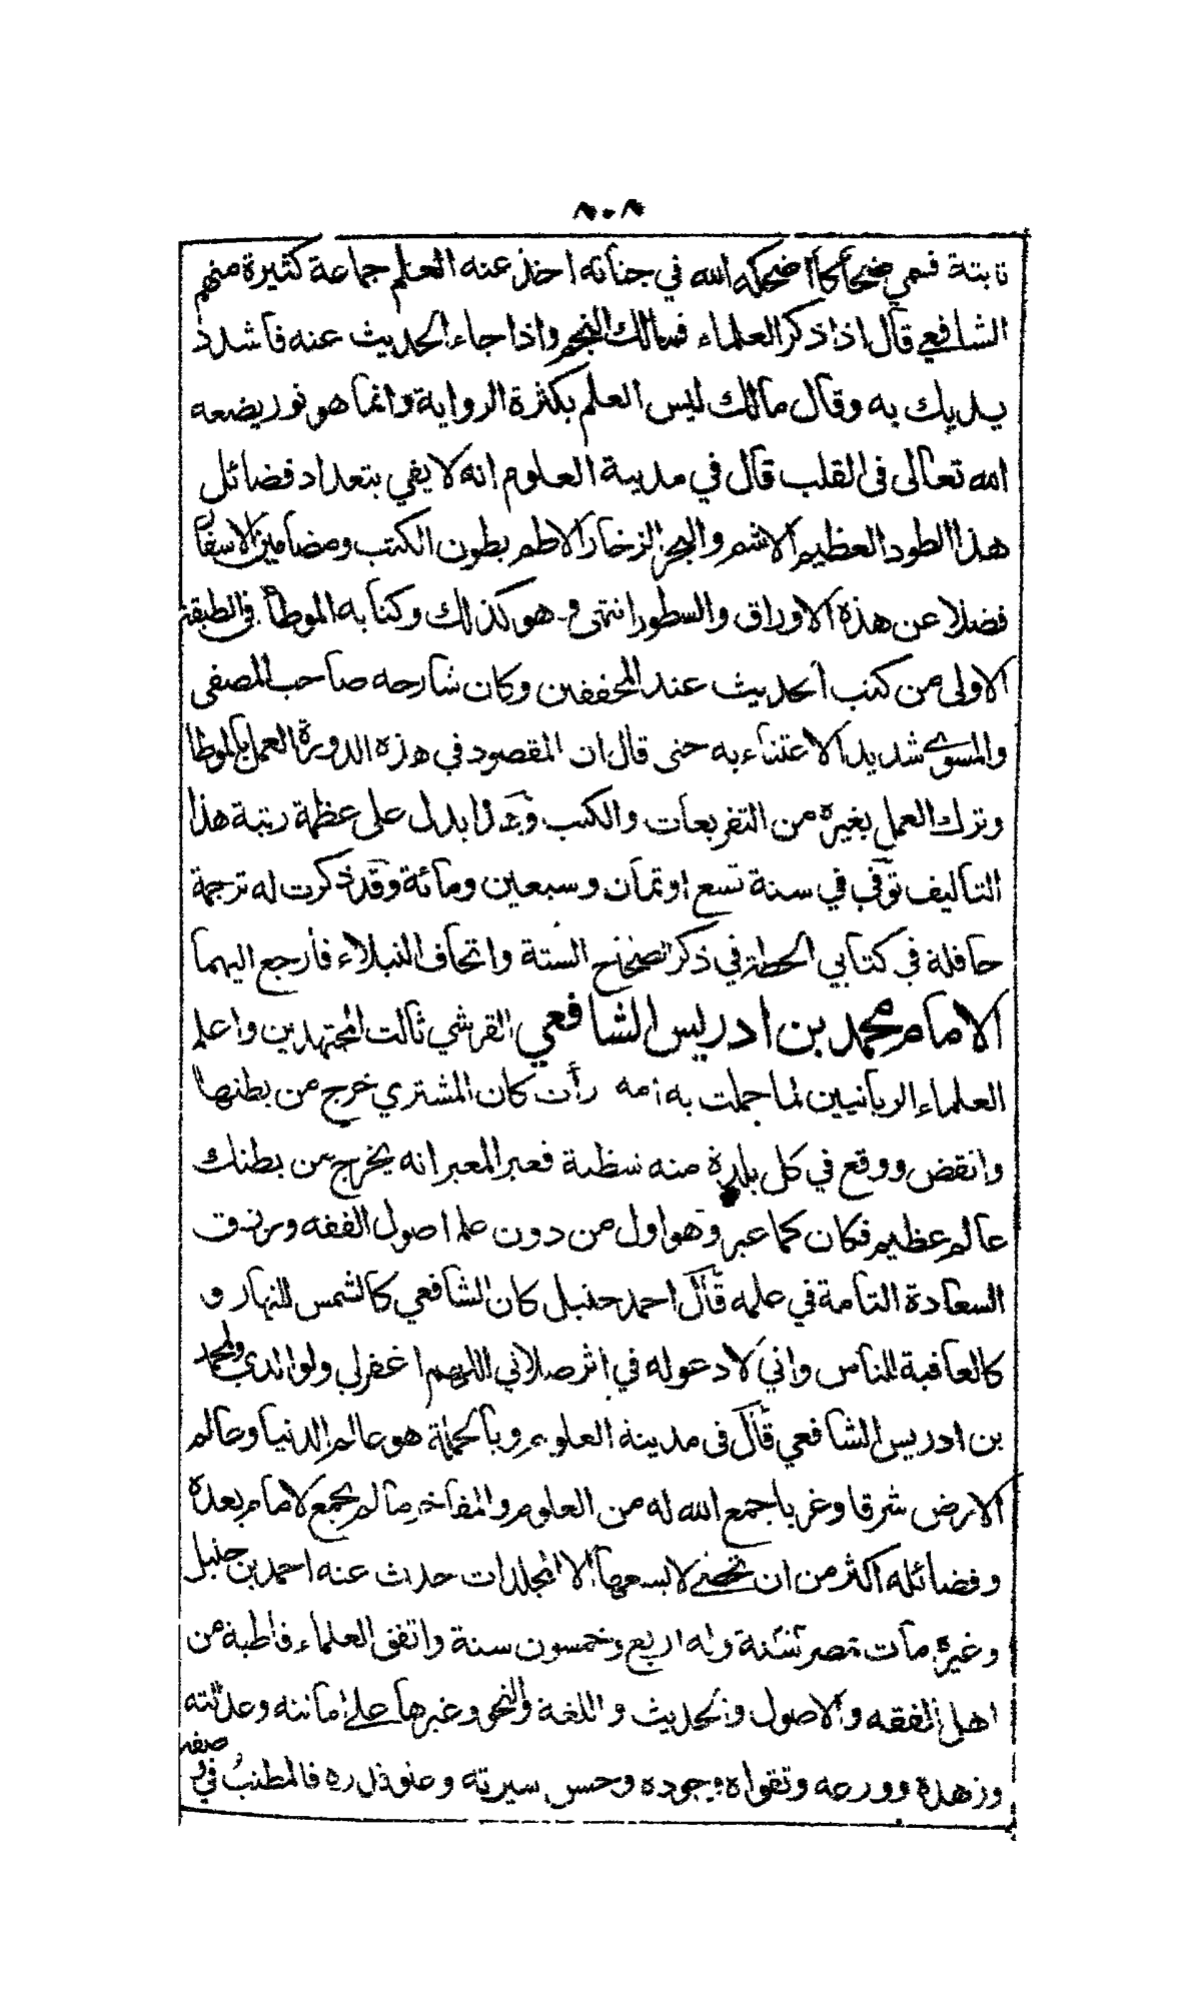 ٨٠٨
نابتة فسمي ضحاكا اضحكه الله في جنانه اخذ عنه العلم جماعة كثيرة منهم
الشافعي قال اذا ذكر العلماء فمالك النجم واذا جاء الحديث عنه فاشدد
يديك به وقال مالك ليس العلم بكثرة الرواية وانما هو نور يضعه
الله تعالى فى القلب قال في مدينة العلوم انه لا يفي بتعداد فضائل
هذا الطود العظيم الاشم والبحر الزخار الاطم بطون الكتب ومضامين الاسفار
فضلا عن هذه الاوراق والسطور انتهى وهو كذلك وكتابه الموطأ في الطبقة
الاولى من كتب الحديث عند المحققين وكان شارحه صاحب المصفى
والمسوى شديد الاعتناء به حتى قال ان المقصود في هذه الدورة العمل بالموطا
وترك العمل بغيره من التفريعات والكتب وهذا يدل على عظمة رتبة هذا
التاليف توفي في سنة تسع او ثمان وسبعين ومائة وقد ذكرت له ترجمة
حافلة في كتابي الحطة في ذكر الصحاح الستة واتحاف النبلاء فارجع اليهما
الامام محمد بن ادريس الشافعي القرشي ثالث المجتهدين واعلم
العلماء الربانيين لما حملت به امه رأت كان المشتري خرج من بطنها
وانقض ووقع في كل بلدة منه شظية فعبر المعبر انه يخرج من بطنك
عالم عظيم فكان كما عبر وهو اول من دون علم اصول الفقه ورزق
السعادة التامة في علمه قال احمد حنبل كان الشافعي كالشمس للنهار و
كالعافية للناس واني لادعو له في اثر صلاتي اللهم اغفر لي ولوالدي ولمحمد
بن ادريس الشافعي قال فى مدينة العلوم وبالجملة هو عالم الدنيا وعالم
الارض شرقا وغربا جمع الله له من العلوم والمفاخر ما لم يجمع لامام بعده
وفضائله اكثر من ان تحصى لا يسعها الا المجلدات حدث عنه احمد بن حنبل
وغيره مات بمصر سنة وله اربع وخمسون سنة واتفق العلماء قاطبة من
اهل الفقه والاصول والحديث و اللغة والنحو وغيرها على امانته وعدالته
وزهده وورعه وتقواه وجوده وحسن سيرته وعلو قدره فالمطنب في وصفه